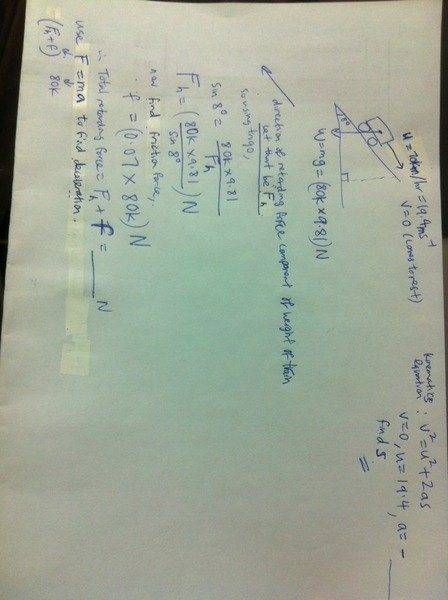 u = 70km/hr = 19.4ms⁻¹
v = 0 (comes to rest)
8°
W = mg = (80k × 9.81) N
direction of retarding force component of weight of train
Let that be Fh
so using trigo,
sin 8° = 80k × 9.81 / Fh
Fh = (80k × 9.81 / sin 8°) N
now find friction force,
f = (0.07 × 80k) N
∴ Total retarding force = Fh + f = ____ N
use F = ma to find deceleration.
(Fh+f) 80k
kinematics equation : v² = u² + 2as
v=0, u=19.4, a= - ____
find s